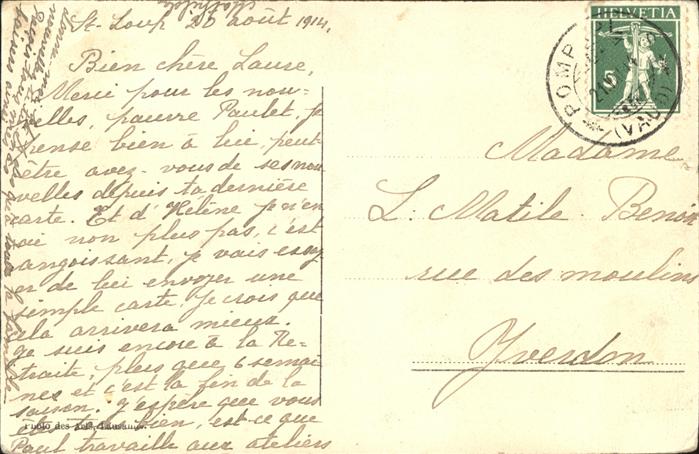 St-Loup 20 août 1914.
Bien chère Laure,
Merci pour les nou-
velles, pauvre Paulet, je
pense bien à lui, peut-
être avez-vous de ses nou
velles depuis ta dernière
carte. Et d'Hélène je n'en
ai non plus pas, c'est
angoissant, je vais essay
er de lui envoyer une
simple carte, je crois que
cela arrivera mieux.
Je suis encore à la Re-
traite, plus que 6 semai
nes et c'est la fin de la
saison. J'espère que vous
êtes tous bien, est-ce que
Paul travaille aux ateliers
Photo des Arts, Lausanne.
HELVETIA
5
POMP
(VAUD)
Madame
L. Matile-Benoit
rue des moulins
Yverdon